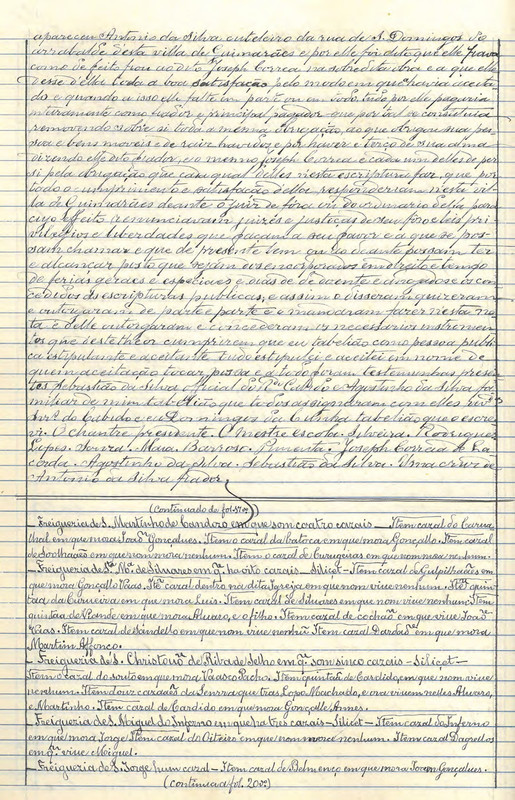 apareceu Antonio da Silva cuteleiro da rua de S. Domingos do
arrabalde desta villa de Guimarães e por elle foi dito que elle ficava
como de feito ficou ao dito Joseph Correa na sobredita obra e a que elle
desse della toda a boa satisfação pelo modo em que havia aceita-
do e quando a isso elle falte em parte ou em todo, tudo por elle pagaria
inteiramente como fiador e principal pagador que por tal se constituia
removendo sobre si toda a mesma obrigação, ao que obrigou sua pes-
soa e bens moveis e de raiz havidos e por haver e terço de sua alma
dizendo elle dito fiador, e o mesmo Joseph Correa e cada um delles de per
si pela obrigação que cada qual delles nesta escritura faz, que por
todo o cumprimento e satisfação della responderiam nesta vil-
la de Guimarães deante o juiz de fora
cujo effeito renunciaram juizes e justiças de seu foro e leis pri-
vilegios e liberdades que façam a seu favor e a que se pos-
sam chamar e que de presente tem ou ao deante possam ter
e alcançar posto que sejam encorporados em direito e tempo
de ferias geraes e especiaes e dias de
cedidos ás escripturas publicas, e assim o disseram quizeram
e outorgaram de parte a parte e mandaram fazer nesta no-
ta e della outorgaram e concederam os necessarios instrumen-
tos que deste theor cumprirem que eu tabelião como pessoa publi-
ca estipulante e aceitante tudo estipulei e aceitei em nome de
quem a aceitação tocar possa e a tudo foram testemunhas presen-
tes Sebastião da Silva official e Agostinho da Silva fa-
miliar de mim tabelião que todos assignaram com elles
do Cabido e eu Domingos da Cunha tabelião que o escre-
vi. O chantre presente. O mestre escola. Silveira. Rodrigues
Lopes. Souza. Maia. Barroso. Pimenta. Joseph Correa
Agostinho da Silva. Sebastião da Silva. Uma cruz de
Antonio da Silva fiador.
(Continuado de fol. 57 vº)
— Freigueria de S. Martinho de Candozo em que son coatro cazais — Item cazal do Carva-
lhal em que mora Joaõ Gonçalves. Item o cazal da batoca em que mora Gonçallo. Item cazal
de Soolhaães em que nom mora nenhum. Item o cazal de Curuquias em que nom mora nenhum.
— Freigueria de Stª Mª de Siluares em q̃ ha oito cazais — Siliçet — Item cazal de Gulpilhaães em
que mora Gonçallo Vaas. Itẽ cazal dentro na dita Igreja em que nom viue nenhum. Itẽ quin-
taã da Cumieira em que mora Luis. Item cazal de Siluares em que nom viue nenhum. Item
quintaã de em que mora Aluaro, e o filho. Item cazal de cochaõ em que viue Joaõ
Vaas. Item cazal de Sandello em que nom viue nenhũ. Item cazal Dardaõ em que mora
Martim Affonço.
— Freigueria de S. Christouaõ de Riba de Selho em q̃ son sinco cazais — Siliçet —
Item o cazal do souto em que mora Vaasco Pacho. Item quintaã de Cardido em que nom viue
nenhum. Item dous cazaães da Senrra que tras Lopo Machado, e ora viuem nelles Aluaro,
e Martinho. Item cazal de Cardido em que mora Gonçalle Annes.
— Freigueria de S. Miguel do Inferno em que ha tres cazais — Siliçet — Item cazal do Inferno
em que mora Jorge. Item cazal do Oiteiro em que non mora nenhum. Item cazal Dagrellos
em q̃ viue Miguel.
— Freigueria de S. Jorge hum cazal — Item cazal de em que mora Joam Gonçalues.
(continua a fol. 20 vº)